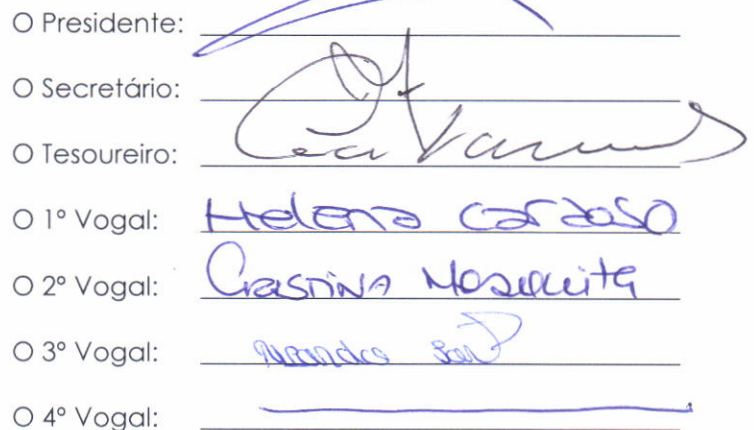 O Presidente:
O Secretário:
O Tesoureiro:
O 1º Vogal: Helena Cardoso
O 2º Vogal: Cristina Mesquita
O 3º Vogal:
O 4º Vogal: